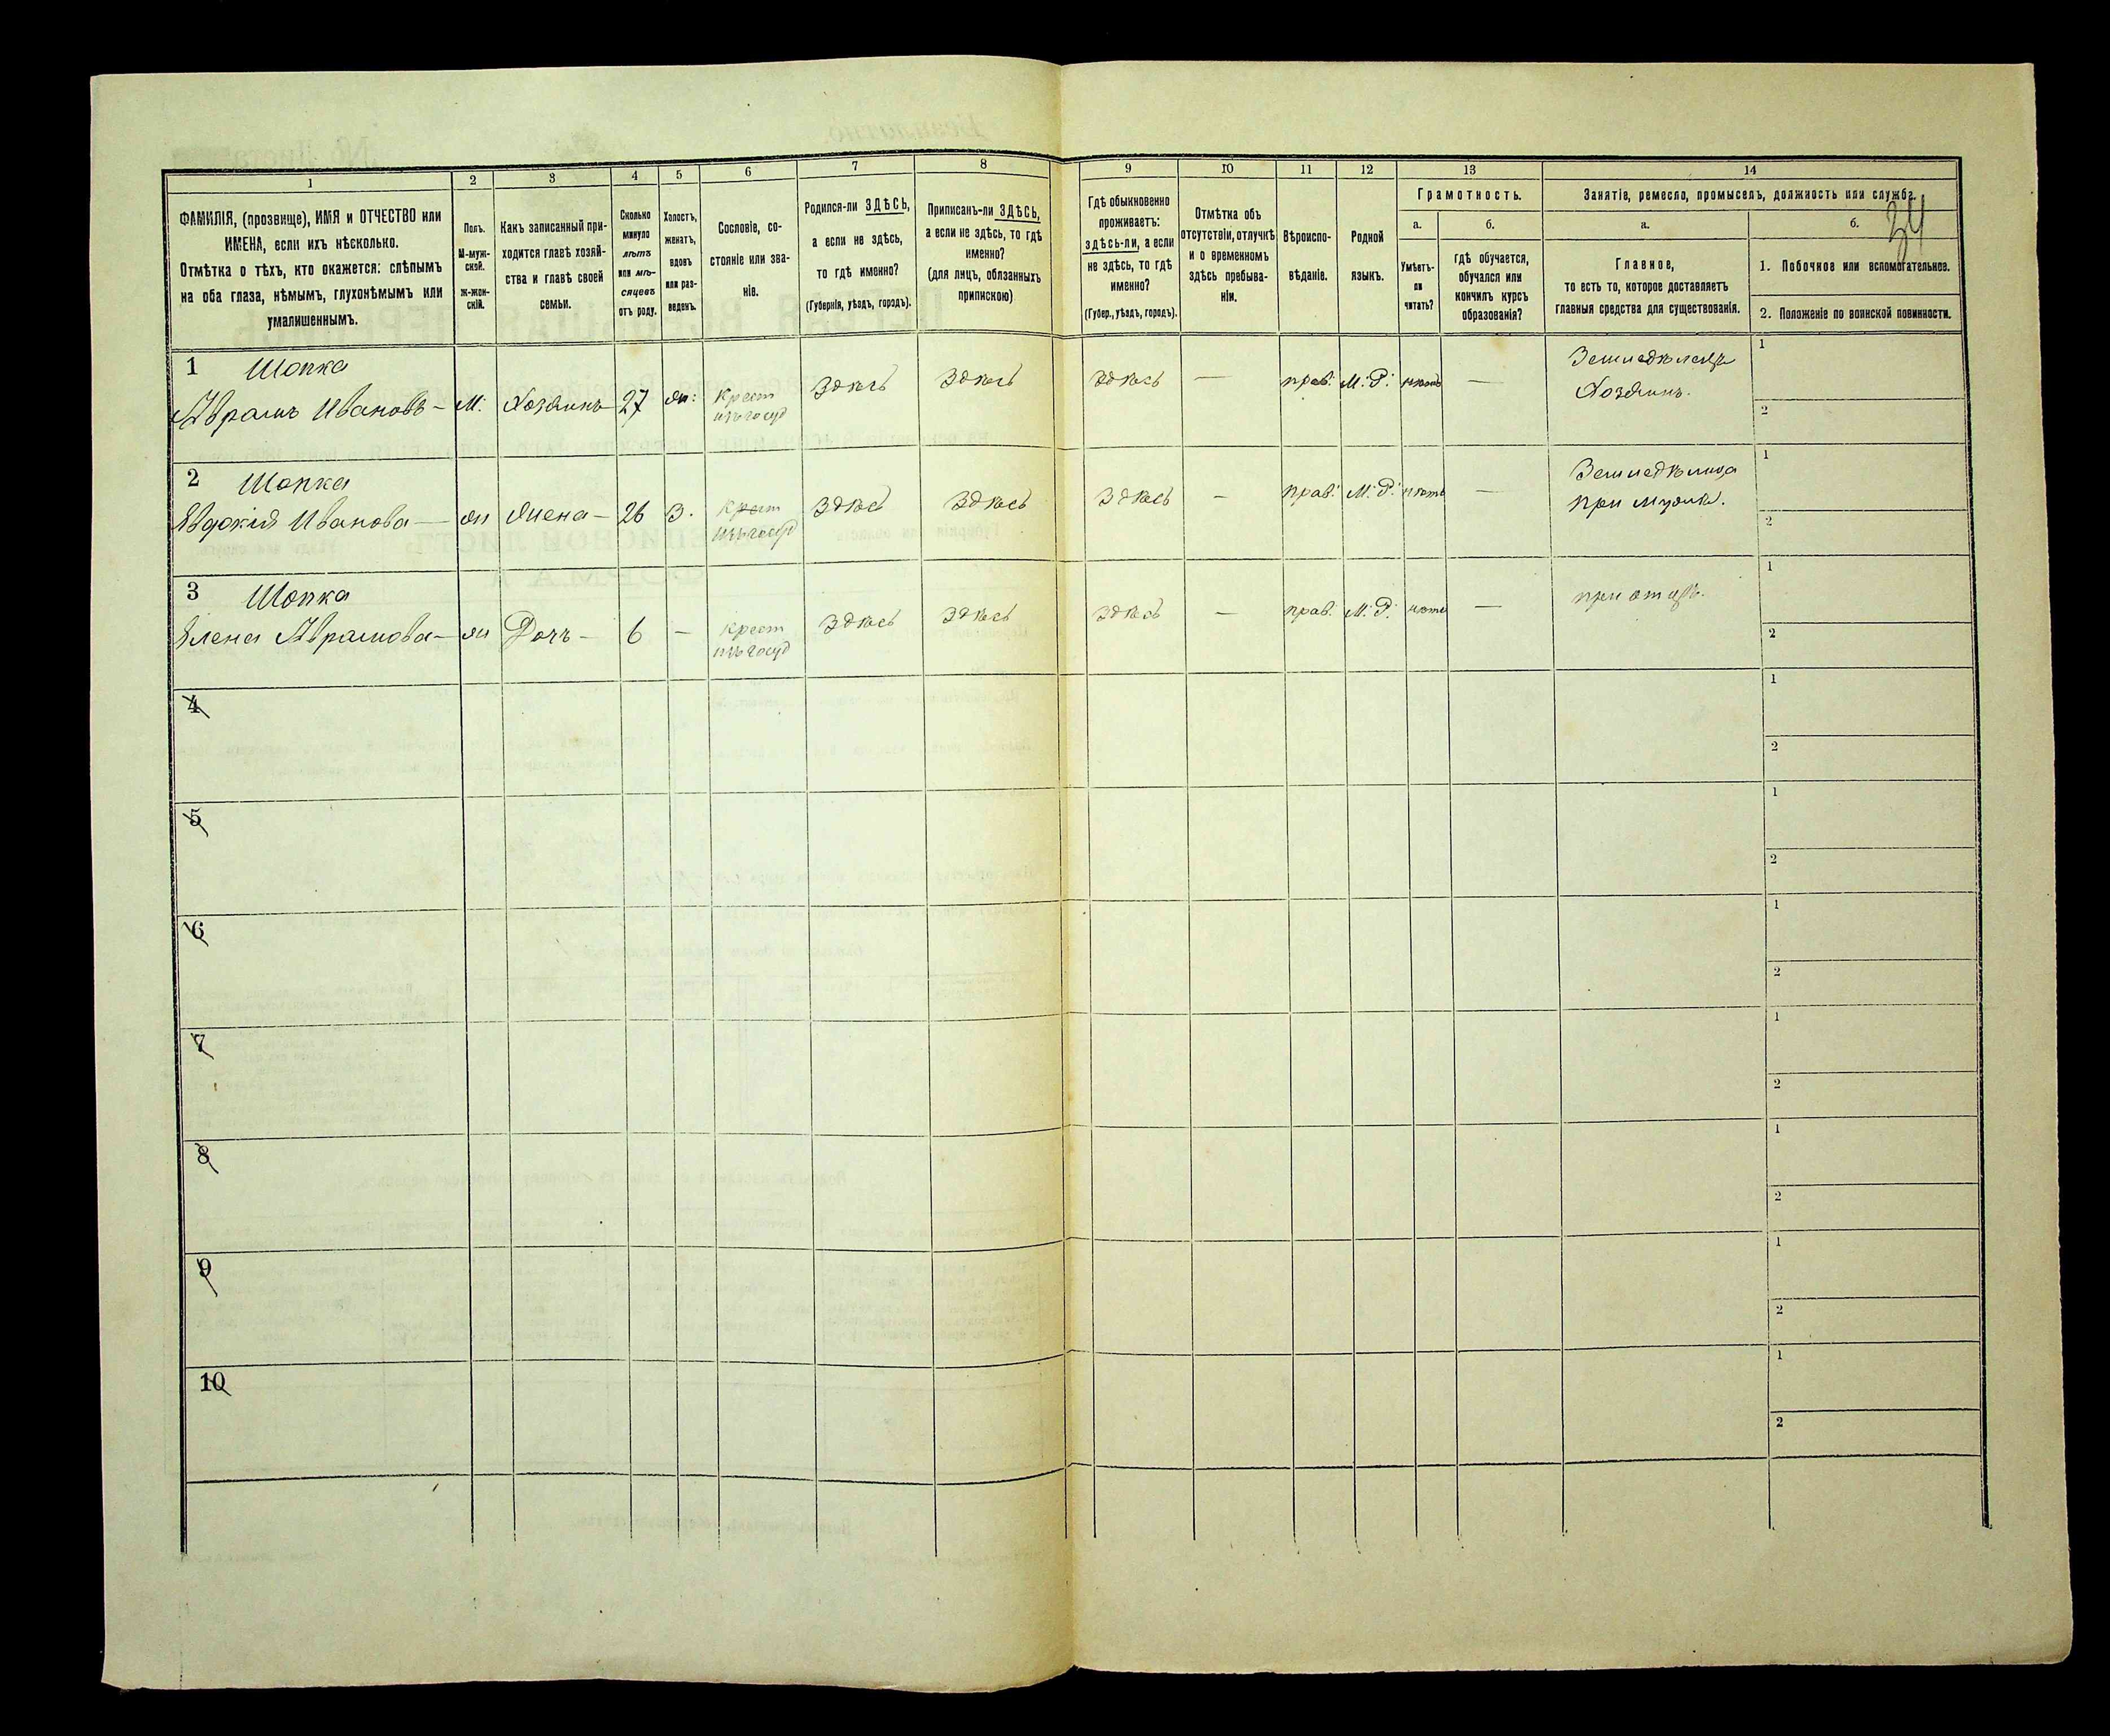 1
2
3
4
5
6
7
8
9
10
11
12
13
14
ФАМИЛІЯ, (прозвище), ИМЯ и ОТЧЕСТВО или
ИМЕНА, если ихъ нѣсколько.
Отмѣтка о тѣхъ, кто окажется: слѣпымъ
на оба глаза, нѣмымъ, глухонѣмымъ или
умалишеннымъ.
Полъ.
М-муж-
ской.
ж-жен-
скій.
Какъ записанный при-
ходится главѣ хозяй-
ства и главѣ своей
семьи.
Сколько
минуло
лѣтъ
или мѣ-
сяцевъ
отъ роду.
Холостъ,
женатъ,
вдовъ
или раз-
веденъ.
Сословіе, со-
стояніе или зва-
ніе.
Родился-ли ЗДѢСЬ,
а если не здѣсь,
то гдѣ именно?
(Губернія, уѣздъ, городъ).
Приписанъ-ли ЗДѢСЬ,
а если не здѣсь, то гдѣ
именно?
(для лицъ, обязанныхъ
припискою)
Гдѣ обыкновенно
проживаетъ:
здѣсь-ли, а если
не здѣсь, то гдѣ
именно?
(Губер., уѣздъ, городъ).
Отмѣтка объ
отсутствіи, отлучкѣ
и о временномъ
здѣсь пребыва-
ніи.
Вѣроиспо-
вѣданіе.
Родной
языкъ.
Грамотность.
а.
Умѣетъ-
ли
читать?
б.
гдѣ обучается,
обучался или
кончилъ курсъ
образованія?
Занятіе, ремесло, промыселъ, должность или служба.
34
а.
Главное,
то есть то, которое доставляетъ
главныя средства для существованія.
б.
1. Побочное или вспомогательное.
2. Положеніе по воинской повинности.
1 Шопка
Аврамъ Ивановъ — М. Хозяинъ 27 ж: Крест
изъ госуд
Здѣсь Здѣсь Здѣсь — прав. М. Р. нѣтъ —
Земледѣлецъ
Хозяинъ.
1
2
2 Шопка
Евдокія Иванова — ж Жена — 26 З. Крест
изъ госуд
Здѣсь Здѣсь Здѣсь — прав. М. Р. нѣтъ —
Земледѣлица
при мужѣ.
1
2
3 Шопка
Елена Аврамова — ж Дочь — 6 — крест
изъ госуд
Здѣсь Здѣсь Здѣсь — прав. М. Р. нѣтъ —
при отцѣ.
1
2
4
1
2
5
1
2
6
1
2
7
1
2
8
1
2
9
1
2
10
1
2